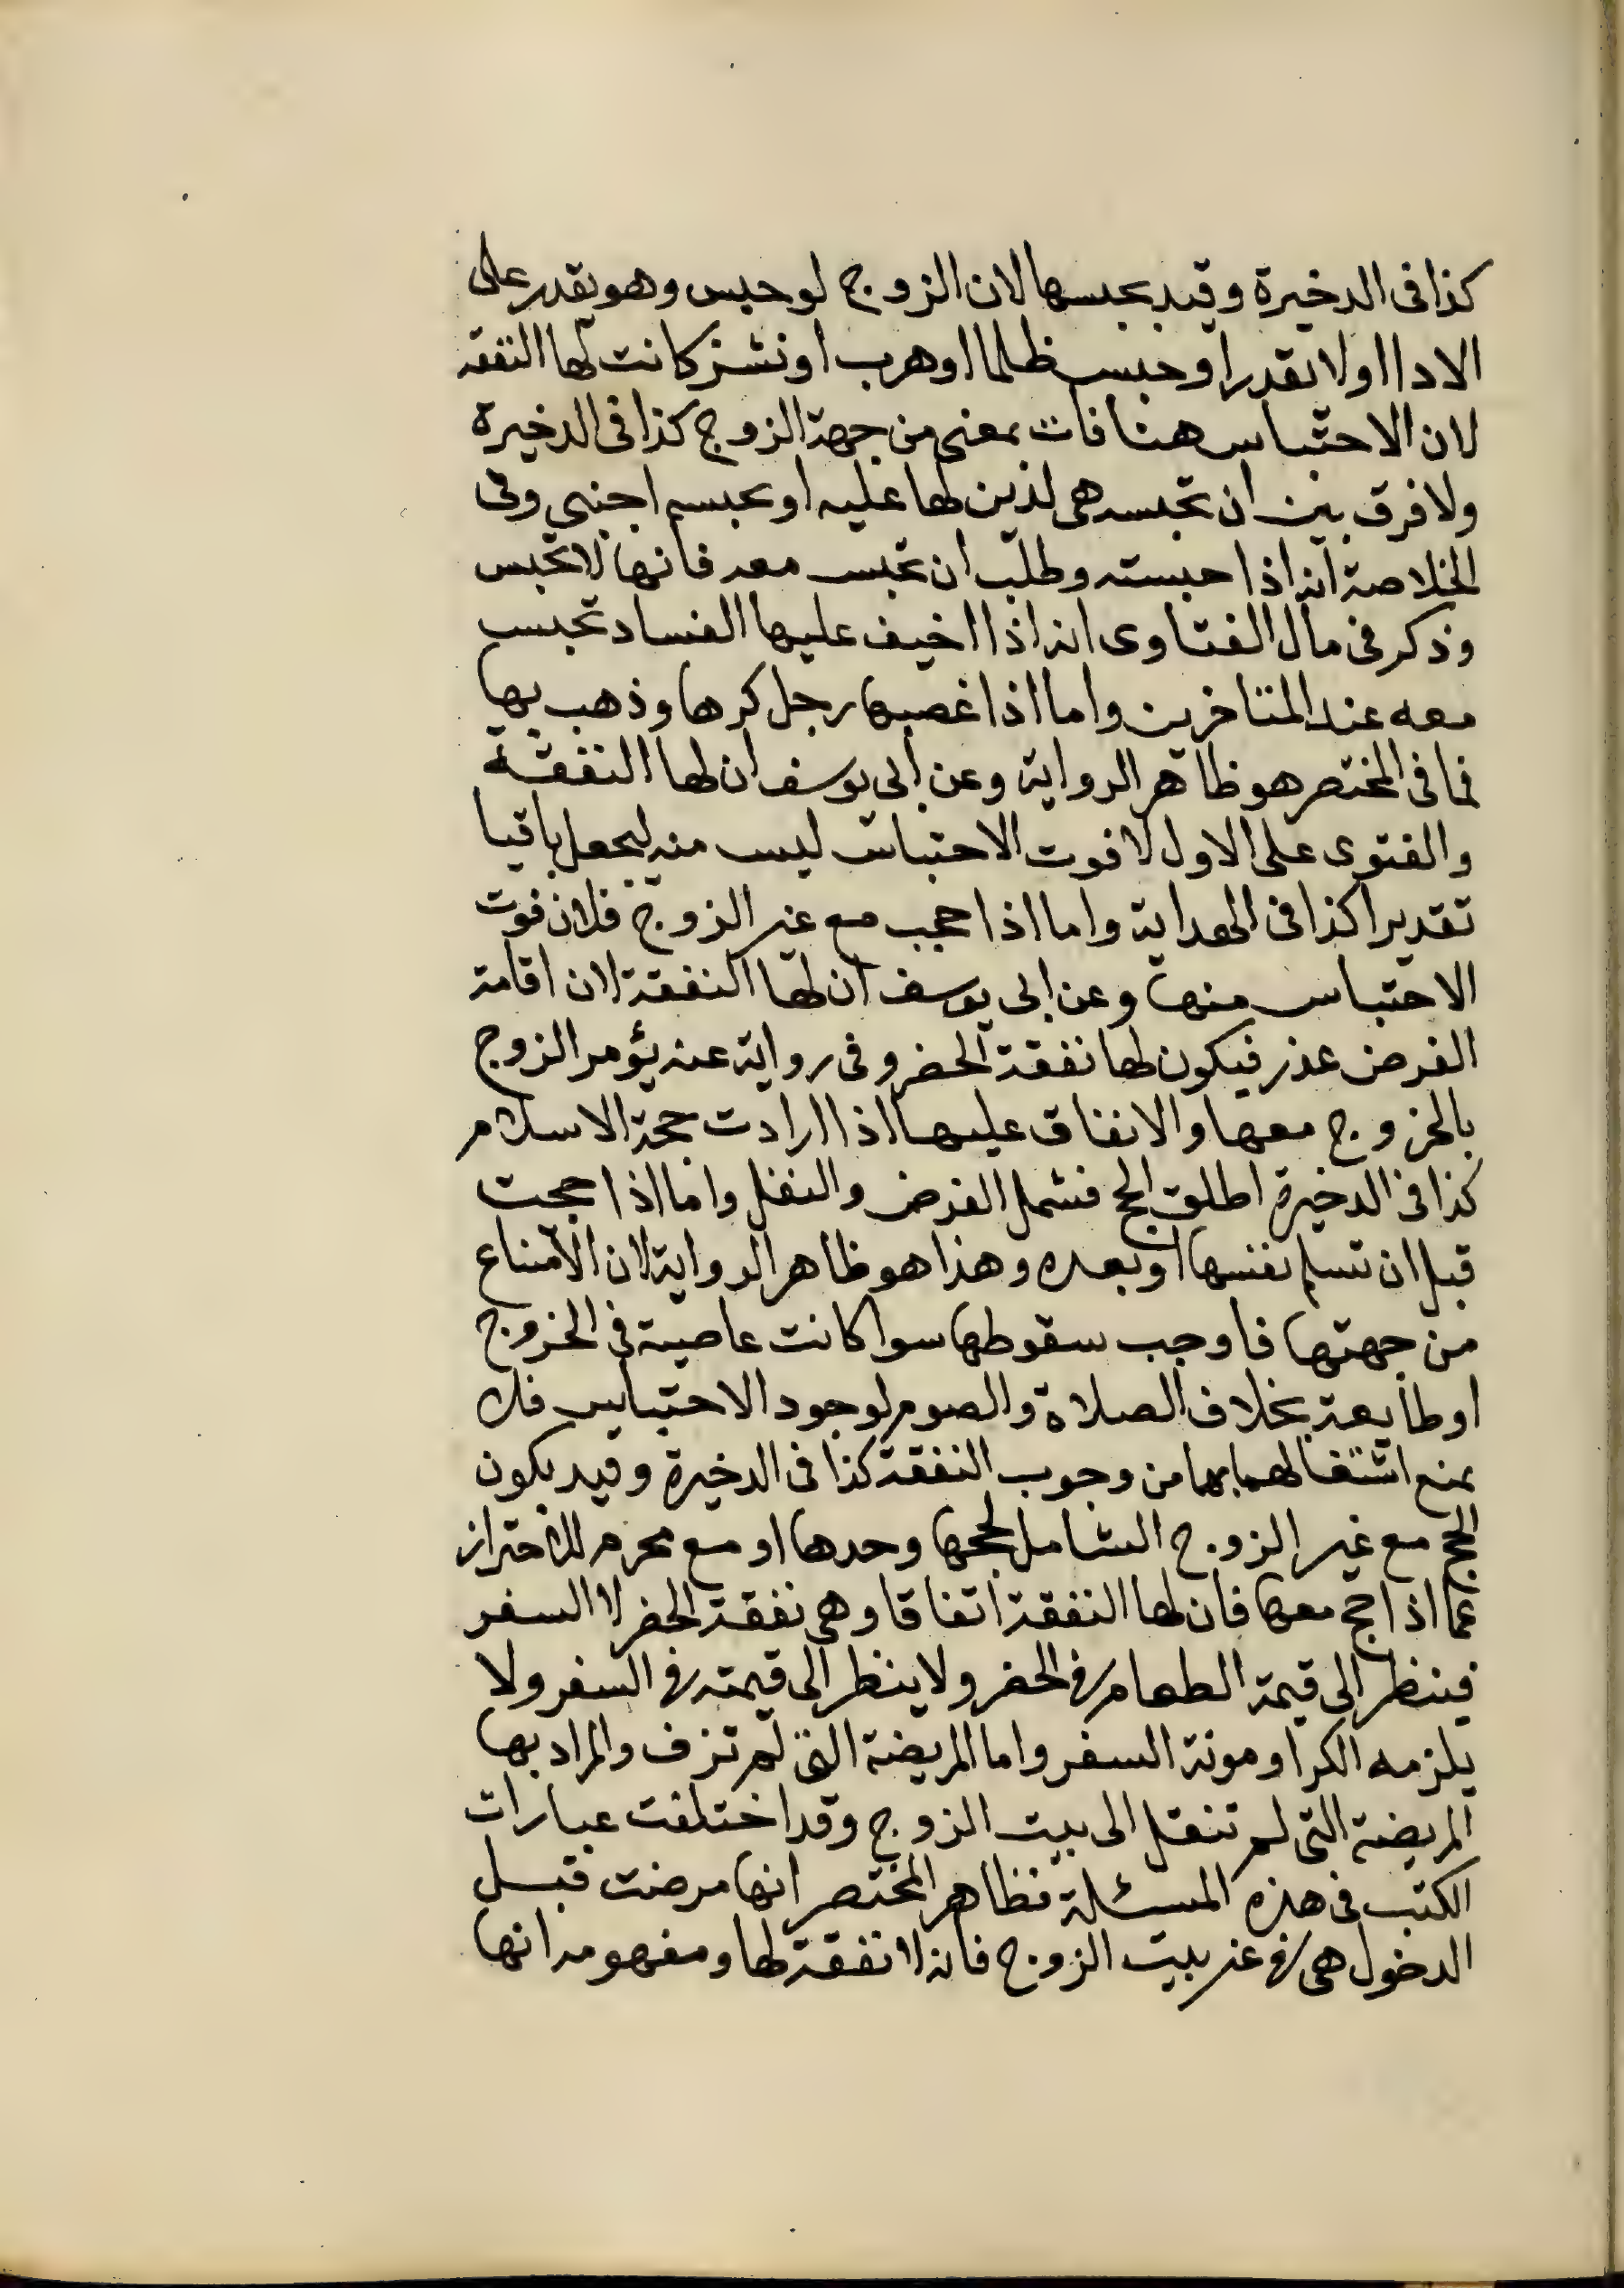 كذا فى الدخيرة وقيد بحبسها لان الزوج لو حبس وهو يقدر على
الادا او لا يقدر او حبس ظلما او هرب او نشز كانت لها النفقه
لان الاحتباس هنا فات بمعنى من جهة الزوج كذا فى الدخيرة
ولا فرق بين ان تحبسه هى لدين لها عليه او يحبسه اجنبي وفى
الخلاصة انه اذا حبسته وطلب ان تحبس معه فانها لا تحبس
وذكر فى مال الفتاوى انه اذا اخيف عليها الفساد تحبس
معه عند المتاخرين واما اذا غصبها رجل كرها وذهب بها
فما فى المختصر هو ظاهر الرواية وعن ابى يوسف ان لها النفقة
والفتوى على الاول لا فوت الاحتباس ليس منه ليجعل باقيا
تقديرا كذا فى الهداية واما اذا حجب مع غير الزوج فلان فوت
الاحتباس منها وعن ابى يوسف ان لها النفقة لان اقامة
الفرض عذر فيكون لها نفقة الحضر وفى رواية عنه يؤمر الزوج
بالخروج معها والانفاق عليها اذا ارادت حجة الاسلام
كذا فى الدخيرة اطلق الحج فشمل الفرض والنفل واما اذا حجت
قبل ان تسلم نفسها او بعده وهذا هو ظاهر الرواية لان الامتناع
من جهتها فاوجب سقوطها سوا كانت عاصية فى الخروج
او طايعة بخلاف الصلاة والصوم لوجود الاحتباس فلا
يمنع اشتغالها بهما من وجوب النفقة كذا فى الدخيرة وقيد بكون
الحج مع غير الزوج الشامل لحجها وحدها او مع محرم للاحتراز
عما اذا حج معها فان لها النفقة اتفاقا وهى نفقة الحضر لا السفر
فينظر الى قيمة الطعام فى الحضر ولا ينظر الى قيمته فى السفر ولا
يلزمه الكرا ومونة السفر واما المريضة التى لم تزف والمراد بها
المريضة التى لم تنقل الى بيت الزوج وقد اختلفت عبارات
الكتب فى هذه المسئلة فظاهر المختصر انها مرضت قبل
الدخول هى فى غير بيت الزوج فانه لا نفقة لها ومفهومه انها